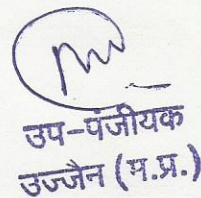 उप-पंजीयक
उज्जैन (म.प्र.)